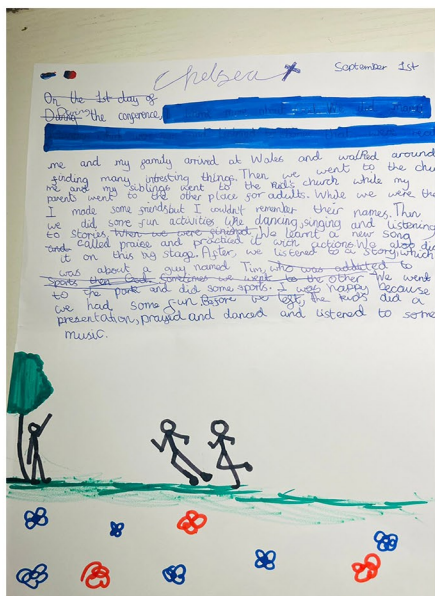 Chelsea
September 1st
On the 1st day of
During the conference,
me and my family arrived at Wales and walked around
finding many intresting things. Then we went to the chu
me and my siblings went to the kid's church while my
parents went to the other place for adults. While we were the
I made some friends but I wouldn't remember their names. Then
we did some fun activities like dancing, singing and listening
to stories. When we were finished We learnt a new song
and called praise and practiced it with actions. We also did
it on this big stage. After, we listened to a story, which
was about a guy named Tim, who was addicted to
sports then God. Sometimes we went to the other We went
to the park and did some sports. I was happy because
we had some fun. Before we left, the kids did a
presentation, prayed and danced and listened to some
music.